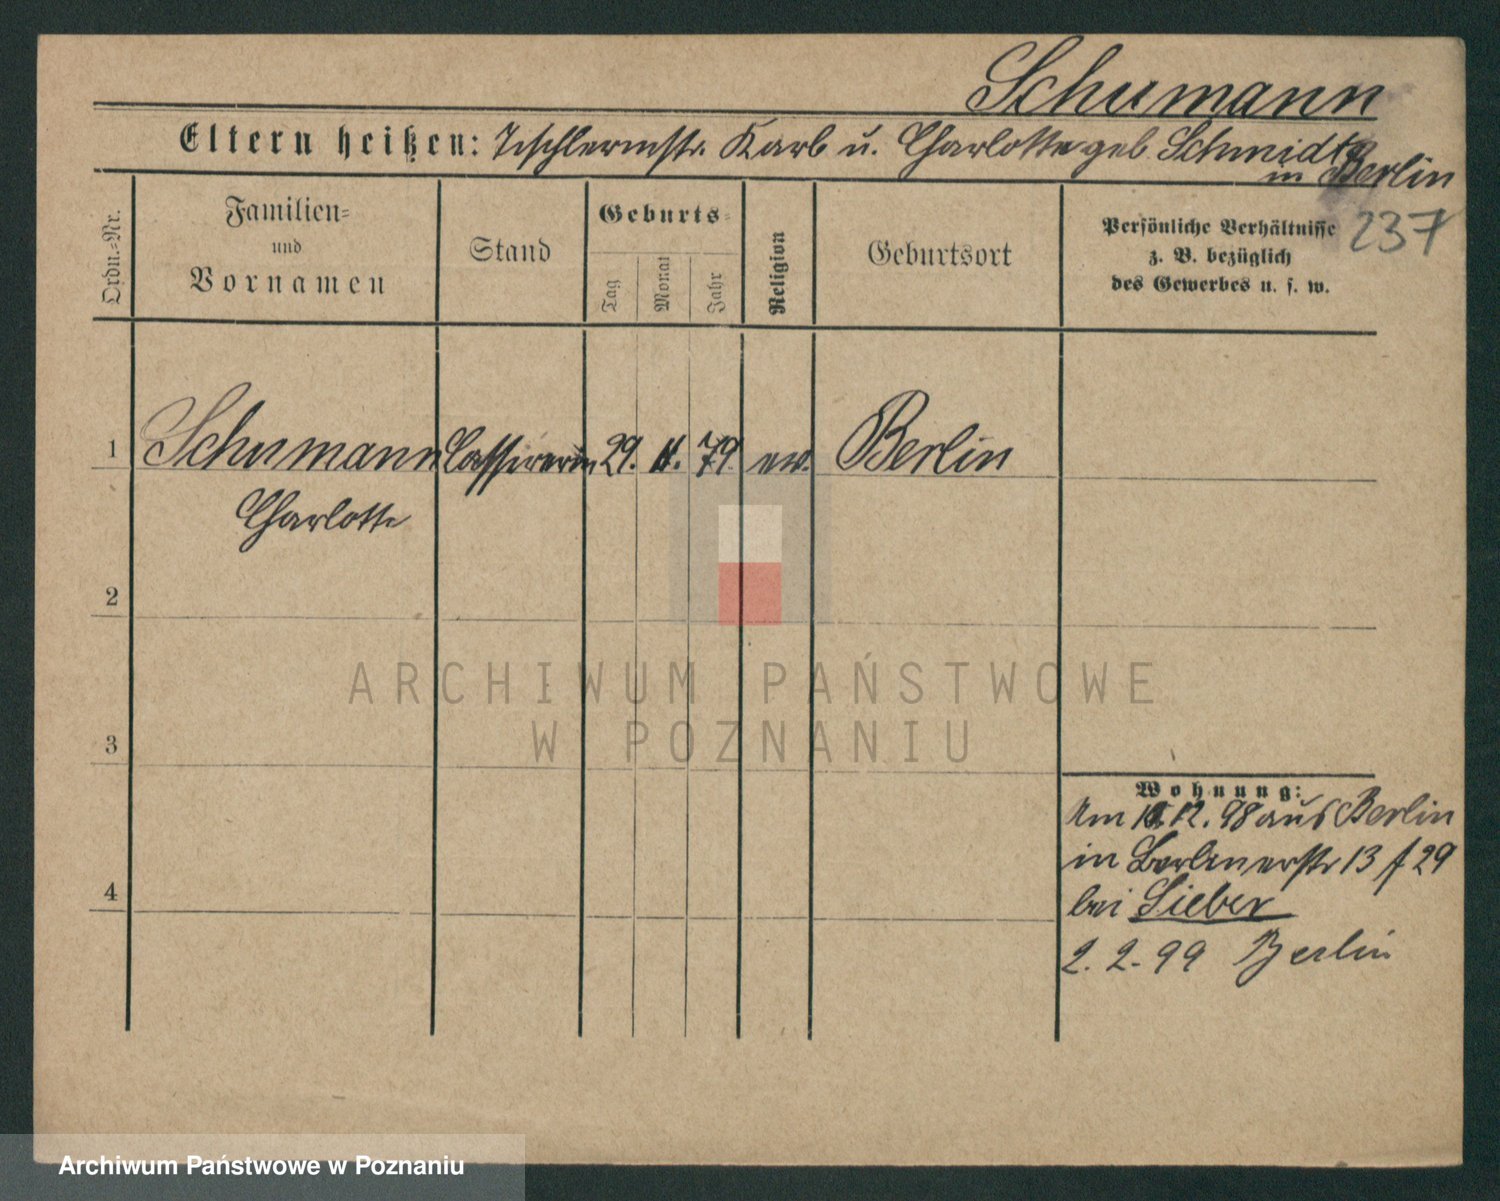 Schumann
Eltern heißen: Tischlermstr. Karl u. Charlotte geb. Schmidt
in Berlin
237
Ordn.-Nr.
Familien- und Vornamen
Stand
Geburts-
Tag
Monat
Jahr
Religion
Geburtsort
Persönliche Verhältnisse
z. B. bezüglich
des Gewerbes u. s. w.
1 Schumann Cassirerin 29. 79. ev. Berlin
Charlotte
2
3
4
Wohnung:
Am 12. 98 aus Berlin
in Berlinerstr 13 f 29
bei Sieber
2. 2. 99 Berlin
ARCHIWUM PAŃSTWOWE
W POZNANIU
Archiwum Państwowe w Poznaniu